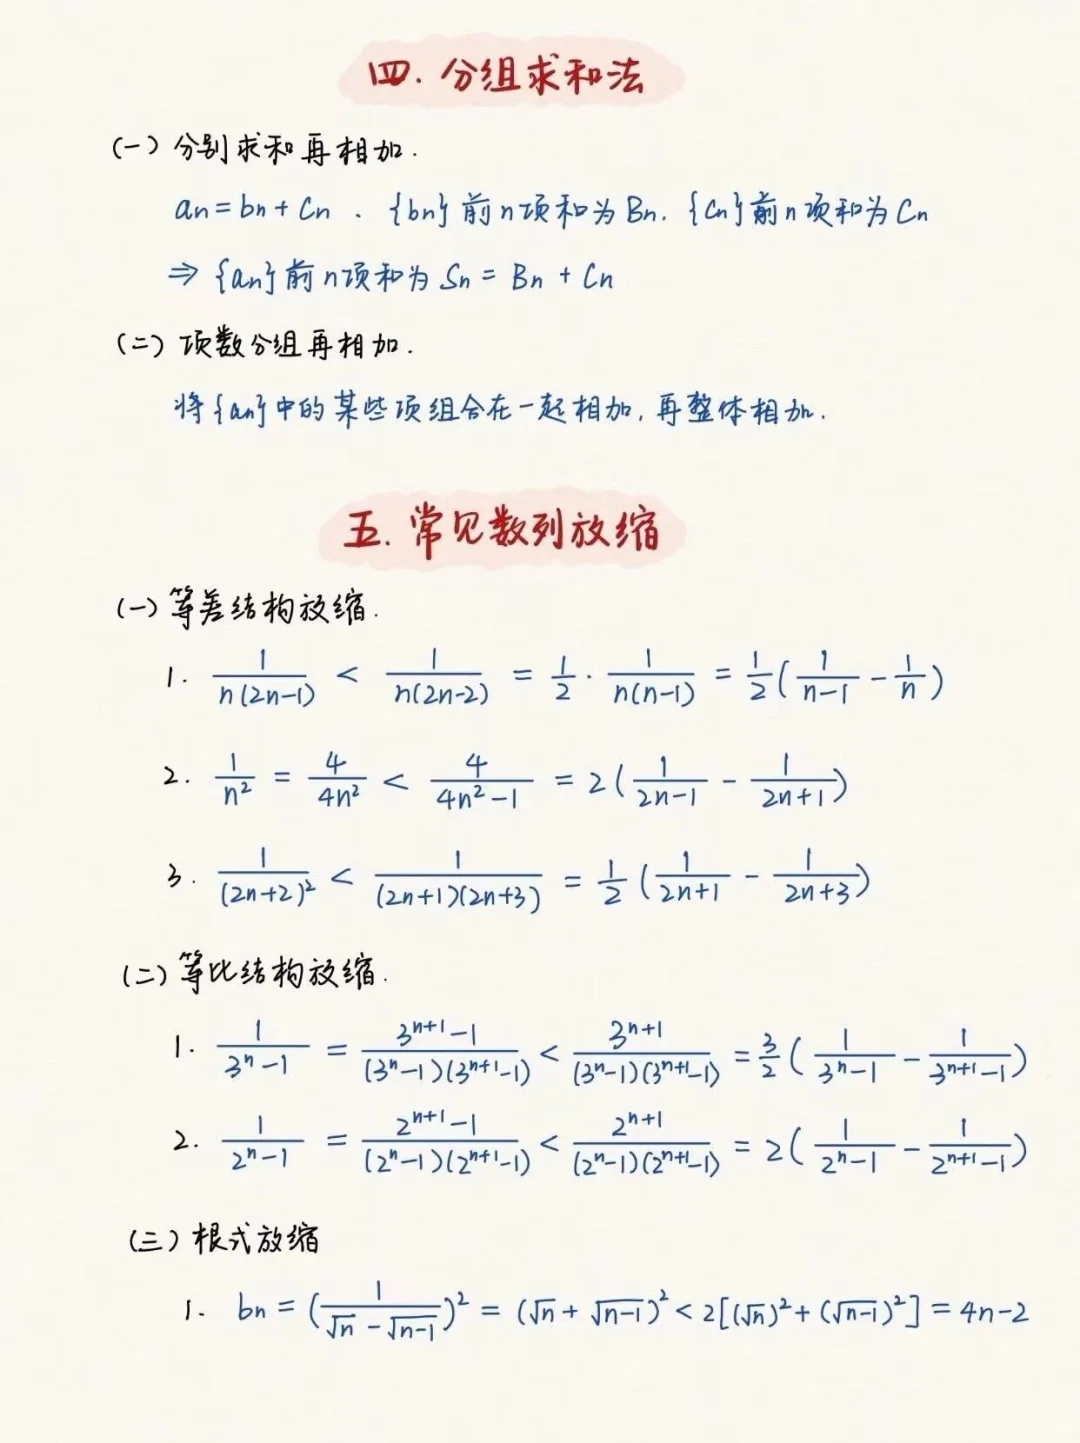 四. 分组求和法
(一) 分别求和再相加.
an = bn + Cn . {bn}前n项和为Bn. {Cn}前n项和为Cn
⇒ {an}前n项和为 Sn = Bn + Cn
(二) 项数分组再相加.
将{an}中的某些项组合在一起相加, 再整体相加.
五. 常见数列放缩
(一) 等差结构放缩.
1. 1/(n(2n-1)) < 1/(n(2n-2)) = 1/2 · 1/(n(n-1)) = 1/2 (1/(n-1) - 1/n)
2. 1/n² = 4/(4n²) < 4/(4n²-1) = 2 (1/(2n-1) - 1/(2n+1))
3. 1/(2n+2)² < 1/((2n+1)(2n+3)) = 1/2 (1/(2n+1) - 1/(2n+3))
(二) 等比结构放缩.
1. 1/(3ⁿ-1) = (3ⁿ⁺¹-1)/((3ⁿ-1)(3ⁿ⁺¹-1)) < 3ⁿ⁺¹/((3ⁿ-1)(3ⁿ⁺¹-1)) = 3/2 (1/(3ⁿ-1) - 1/(3ⁿ⁺¹-1))
2. 1/(2ⁿ-1) = (2ⁿ⁺¹-1)/((2ⁿ-1)(2ⁿ⁺¹-1)) < 2ⁿ⁺¹/((2ⁿ-1)(2ⁿ⁺¹-1)) = 2 (1/(2ⁿ-1) - 1/(2ⁿ⁺¹-1))
(三) 根式放缩
1. bn = (1/(√n - √(n-1)))² = (√n + √(n-1))² < 2[(√n)² + (√(n-1))²] = 4n-2